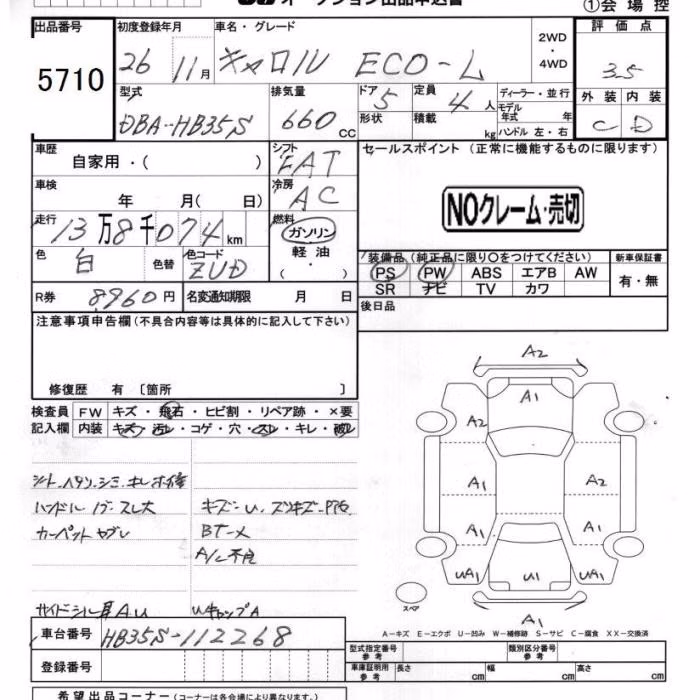 オークション出品申込書
①会場控
出品番号
5710
初度登録年月
26 11月
車名・グレード
キャロル ECO-L
2WD
・
4WD
評価点
3.5
外装 内装
C D
型式
DBA-HB35S
排気量
660 CC
ドア 5
定員 4人
形状
積載 kg
ディーラー・並行
モデル年式 年
ハンドル 左・右
車歴
自家用・( )
シフト
FAT
車検
年 月( 日)
冷房
AC
走行
13万8千074km
燃料
ガソリン
軽油・
( )
色
白
色替
色コード
ZUD
R券 8960円
名変通知期限 月 日
セールスポイント (正常に機能するものに限ります)
NOクレーム・売切
装備品(純正品に限り○をつけてください)
PS PW ABS エアB AW
SR ナビ TV カワ
新車保証書
有・無
後日品
注意事項申告欄(不具合内容等は具体的に記入して下さい)
修復歴 有 [箇所 ]
検査員
記入欄
FW キズ・飛石・ヒビ割・リペア跡・×要
内装 キズ・汚レ・コゲ・穴・スレ・キレ・破レ
シート ヘタリ.シミ.キレ補修
ハンドル ノブ-スレ大
カーペットヤブレ
キズ・U.スリキズ-P多
BT-メ
A/C不良
サイドシル A U
UキャップA
A2
A1
A2
A1
A2
A1
A1
UA1
U1
UA1
A1
スペア
A-キズ E-エクボ U-凹み W-補修跡 S-サビ C-腐食 XX-交換済
車台番号 HB35S-112268
登録番号
型式指定番号
参考
類別区分番号
参考
車庫証明用
参考
長さ cm
幅 cm
高さ cm
希望出品コーナー(コーナーは各会場により異なります。)